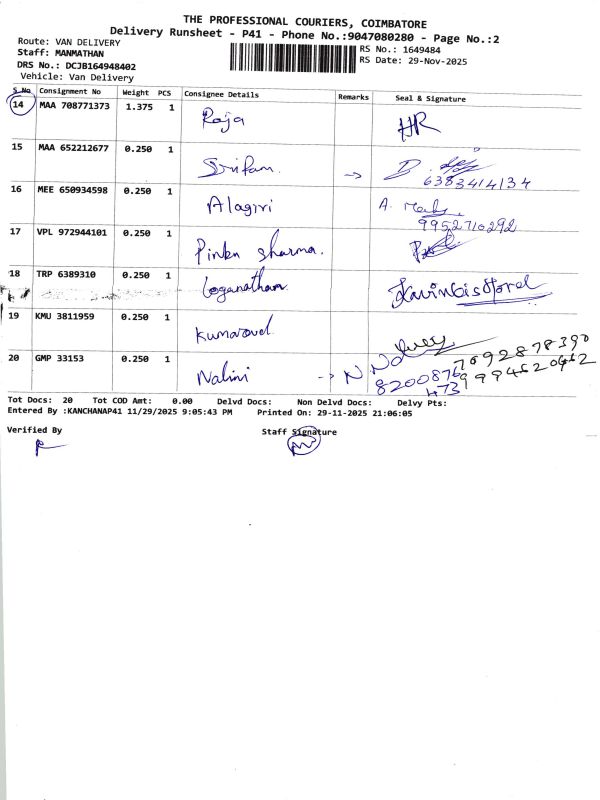 THE PROFESSIONAL COURIERS, COIMBATORE
Delivery Runsheet - P41 - Phone No.:9047080280 - Page No.:2
Route: VAN DELIVERY
Staff: MANMATHAN
DRS No.: DCJB164948402
Vehicle: Van Delivery
RS No.: 1649484
RS Date: 29-Nov-2025
S.No Consignment No Weight PCS Consignee Details Remarks Seal & Signature
14 MAA 708771373 1.375 1 Raja HR
15 MAA 652212677 0.250 1 Sriram → D.
6383414134
16 MEE 650934598 0.250 1 Alagiri A.
9952710292
17 VPL 972944101 0.250 1 Pinku Sharma.
18 TRP 6389310 0.250 1 Loganathan
19 KMU 3811959 0.250 1 Kumaravel
20 GMP 33153 0.250 1 Nalini → N
7092878390
Tot Docs: 20 Tot COD Amt: 0.00 Delvd Docs: Non Delvd Docs: Delvy Pts:
Entered By :KANCHANAP41 11/29/2025 9:05:43 PM Printed On: 29-11-2025 21:06:05
Verified By Staff Signature